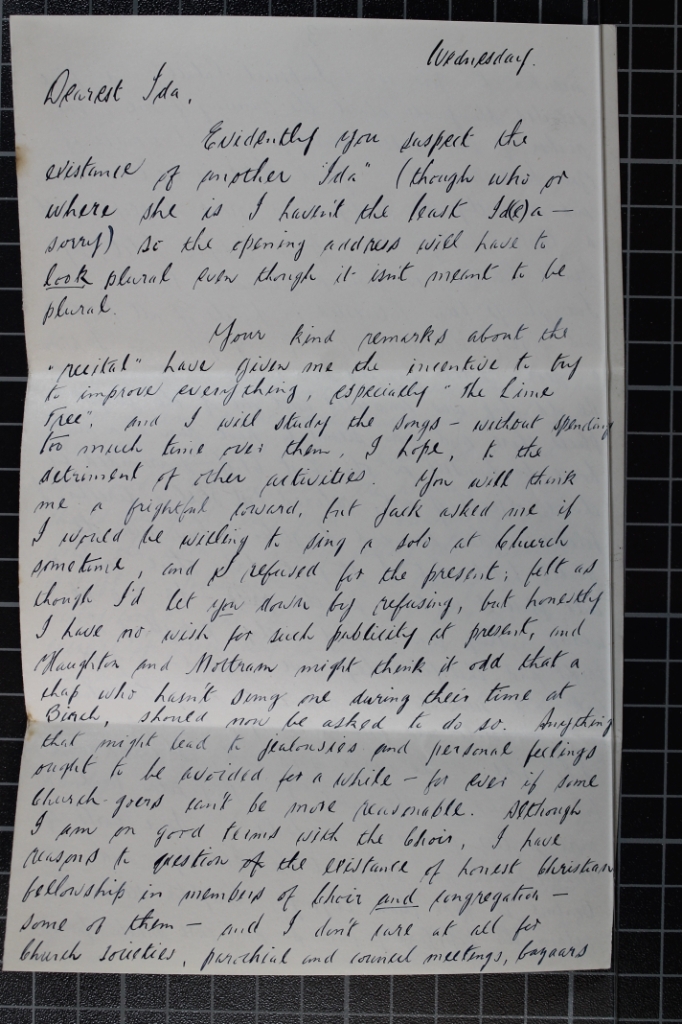 Wednesday.
Dearest Ida,
Evidently you suspect the
existance of another "Ida" (though who or
where she is I haven't the least Id(e)a —
sorry) so the opening address will have to
look plural even though it isn't meant to be
plural.
Your kind remarks about the
"recital" have given me the incentive to try
to improve everything, especially "The Lime
Tree", and I will study the songs – without spending
too much time over them, I hope, to the
detriment of other activities. You will think
me a frightful coward, but Jack asked me if
I would be willing to sing a solo at Church
sometime, and I refused for the present; felt as
though I'd let you down by refusing, but honestly
I have no wish for such publicity at present, and
Haughton and Mottram might think it odd that a
chap who hasn't sung one during their time at
Birch, should now be asked to do so. Anything
that might lead to jealousies and personal feelings
ought to be avoided for a while – for ever if some
Church-goers can't be more reasonable. Although
I am on good terms with the Choir, I have
reasons to question the existance of honest Christian
fellowship in members of Choir and congregation –
some of them – and I don't care at all for
Church societies, parochial and council meetings, bazaars